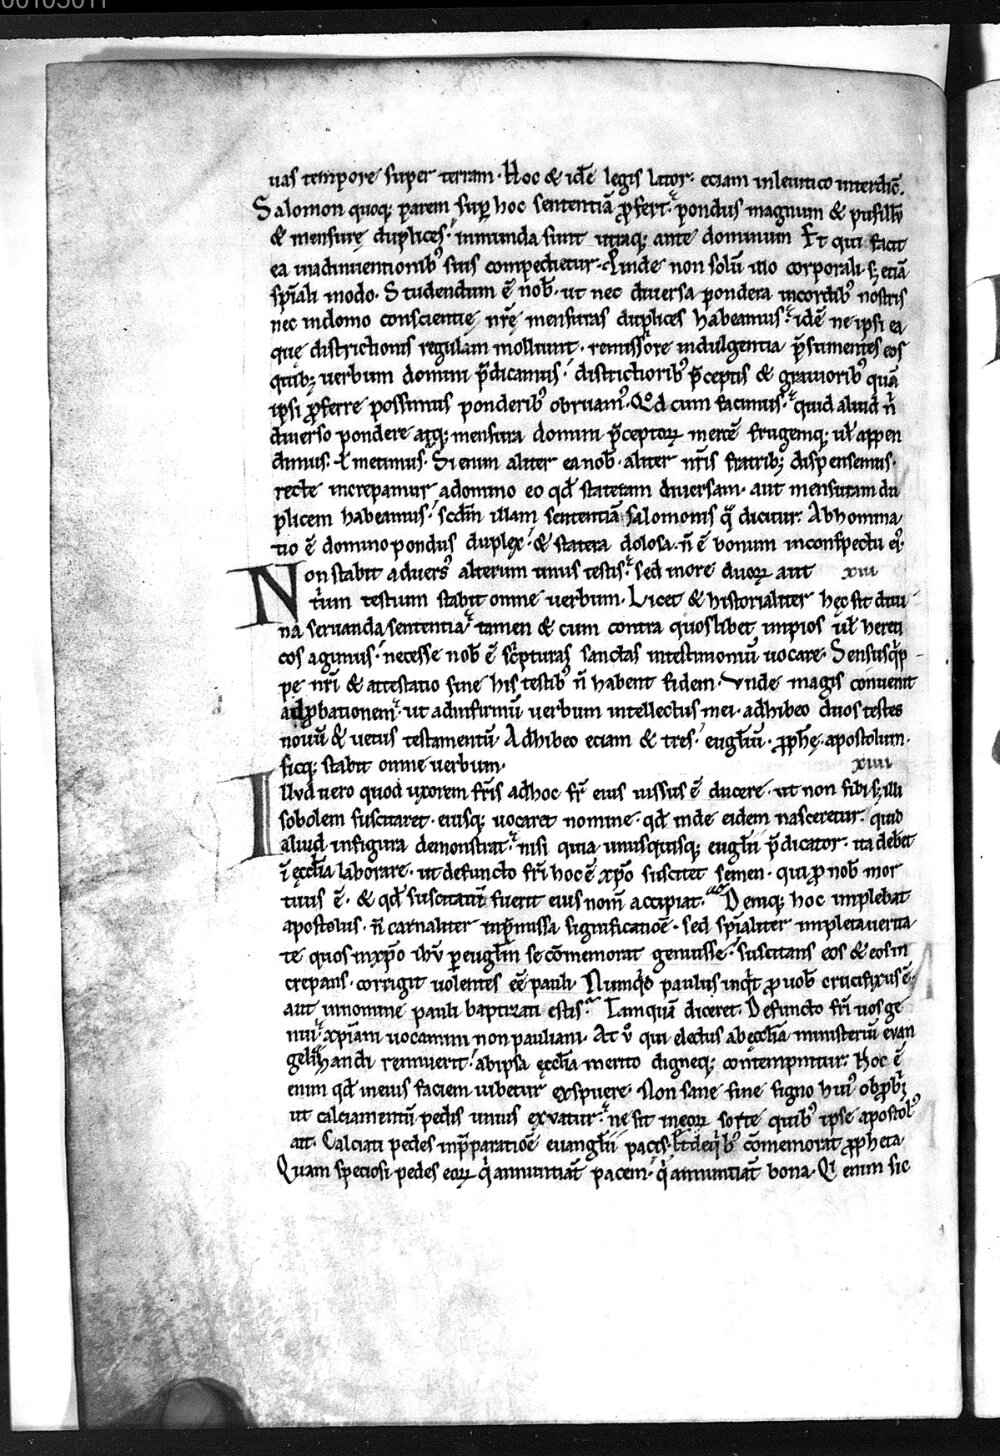 uas tempore super terram. Hoc & idē legis lator. eciam inleuitico interdic̄.
Salomon quoq; parem sup̱ hoc sententiā ꝓfert. pondus magnum & pusillū
& mensurę duplices. inmunda sunt utraq; ante dominum Et qui facit
ea inadinuentionib; suis compedietur. Unde non solū illo corporali. s; etiā
sp̄iali modo. Studendum ē nob̄. ut nec diuersa pondera incordib; nostris
nec indomo conscientię nr̄ę mensuras duplices habeamus. idē ne ipsi ea
quę districtionis regulam molliunt. remissiore indulgentia p̄sumentes eos
quib; uerbum domini p̄dicamus. districtiorib; p̄ceptis & grauiorib; quā
ipsi ꝓferre possimus ponderib; obruam᷒. Qd̄ cum facimus. quid aliud n̄
diuerso pondere atq; mensura domini p̄ceptoꝝ mercē frugemq; ul̄ appen
dimus. ł metimus. Si enim aliter ea nob̄. aliter nr̄is fratrib; dispensemus.
recte increpamur adomino eo qd̄ stateram diuersam. aut mensuram du
plicem habeamus. scdm̄ illam sententiā salomonis q̄ dicitur. Abhomina
tio ē domino pondus duplex. & statera dolosa. n̄ ē bonum inconspectu ei᷒.
Non stabit aduers᷒ alterum unus testis. sed inore duoꝝ aut xiii
trium testium stabit omne uerbum. Licet & historialiter hęc sit diui
na seruanda sententia. tamen & cum contra quoslibet impios ul̄ hereti
cos agimus. necesse nob̄ ē scripturas sanctas intestimoniū uocare. Sensusq̄ip
pe nr̄i & attestatio sine his testib; n̄ habent fidem. Vnde magis conuenit
adꝓbationem. ut adinfirmū uerbum intellectus mei. adhibeo duos testes
nouū & uetus testamentū. Adhibeo eciam & tres. eugl̄iū. ꝓph̄ę. apostolum.
sicq; stabit omne uerbum. xiiii
Illud uero quod uxorem fr̄is adhoc fr̄ eius iussus ē ducere. ut non sibi s; illi
sobolem suscitaret. eiusq; uocaret nomine. qd̄ inde eidem nasceretur. quid
aliud infigura demonstrat. nisi quia unusquisq; eugl̄ii p̄dicator. ita debet
ī ęcclīa laborare. ut defuncto fr̄i hoc ē xp̄o suscitet semen. qui ꝓ nob̄ mor
tuus ē. & qd̄ suscitatū fuerit eius nom̄ accipiat. Deniq; hoc implebat
apostolus. n̄ carnaliter inp̄missa significatioē. sed sp̄ialiter impleta uerita
te quos inxp̄o ih̄u p̱ eugl̄m se cōmemorat genuisse. suscitans eos & eos in
crepans. corrigit uolentes eē pauli. Nunqd̄ paulus inqt̄ ꝓ uob̄ crucifixus ē.
aut innomine pauli baptizati estis. Tamquā diceret. Defuncto fr̄i uos ge
nui. xp̄iani uocamini non pauliani. At ů qui electus abęcclīa ministeriū evan
gelizandi rennuerit. abipsa ęcclīa merito digneq; contempnitur. Hoc ē
enim qd̄ ineius faciem iubetur exspuere. Non sane sine signo hui᷒ obꝓbrii
ut calciamentū pedis unius exuatur. ne sit ineoꝝ sorte quib; ipse apostol᷒
ait. Calciati pedes inp̄paratiōē euangl̄ii pacis. & deq̄ib; cōmemorat ꝓpheta
Quam speciosi pedes eoꝝ q̄i annuntiāt pacem. q̄i annuntiāt bona. Qi enim sic